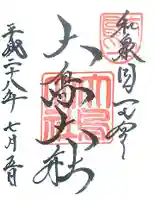 和泉国一之宮
大鳥大社
平成二十八年七月五日